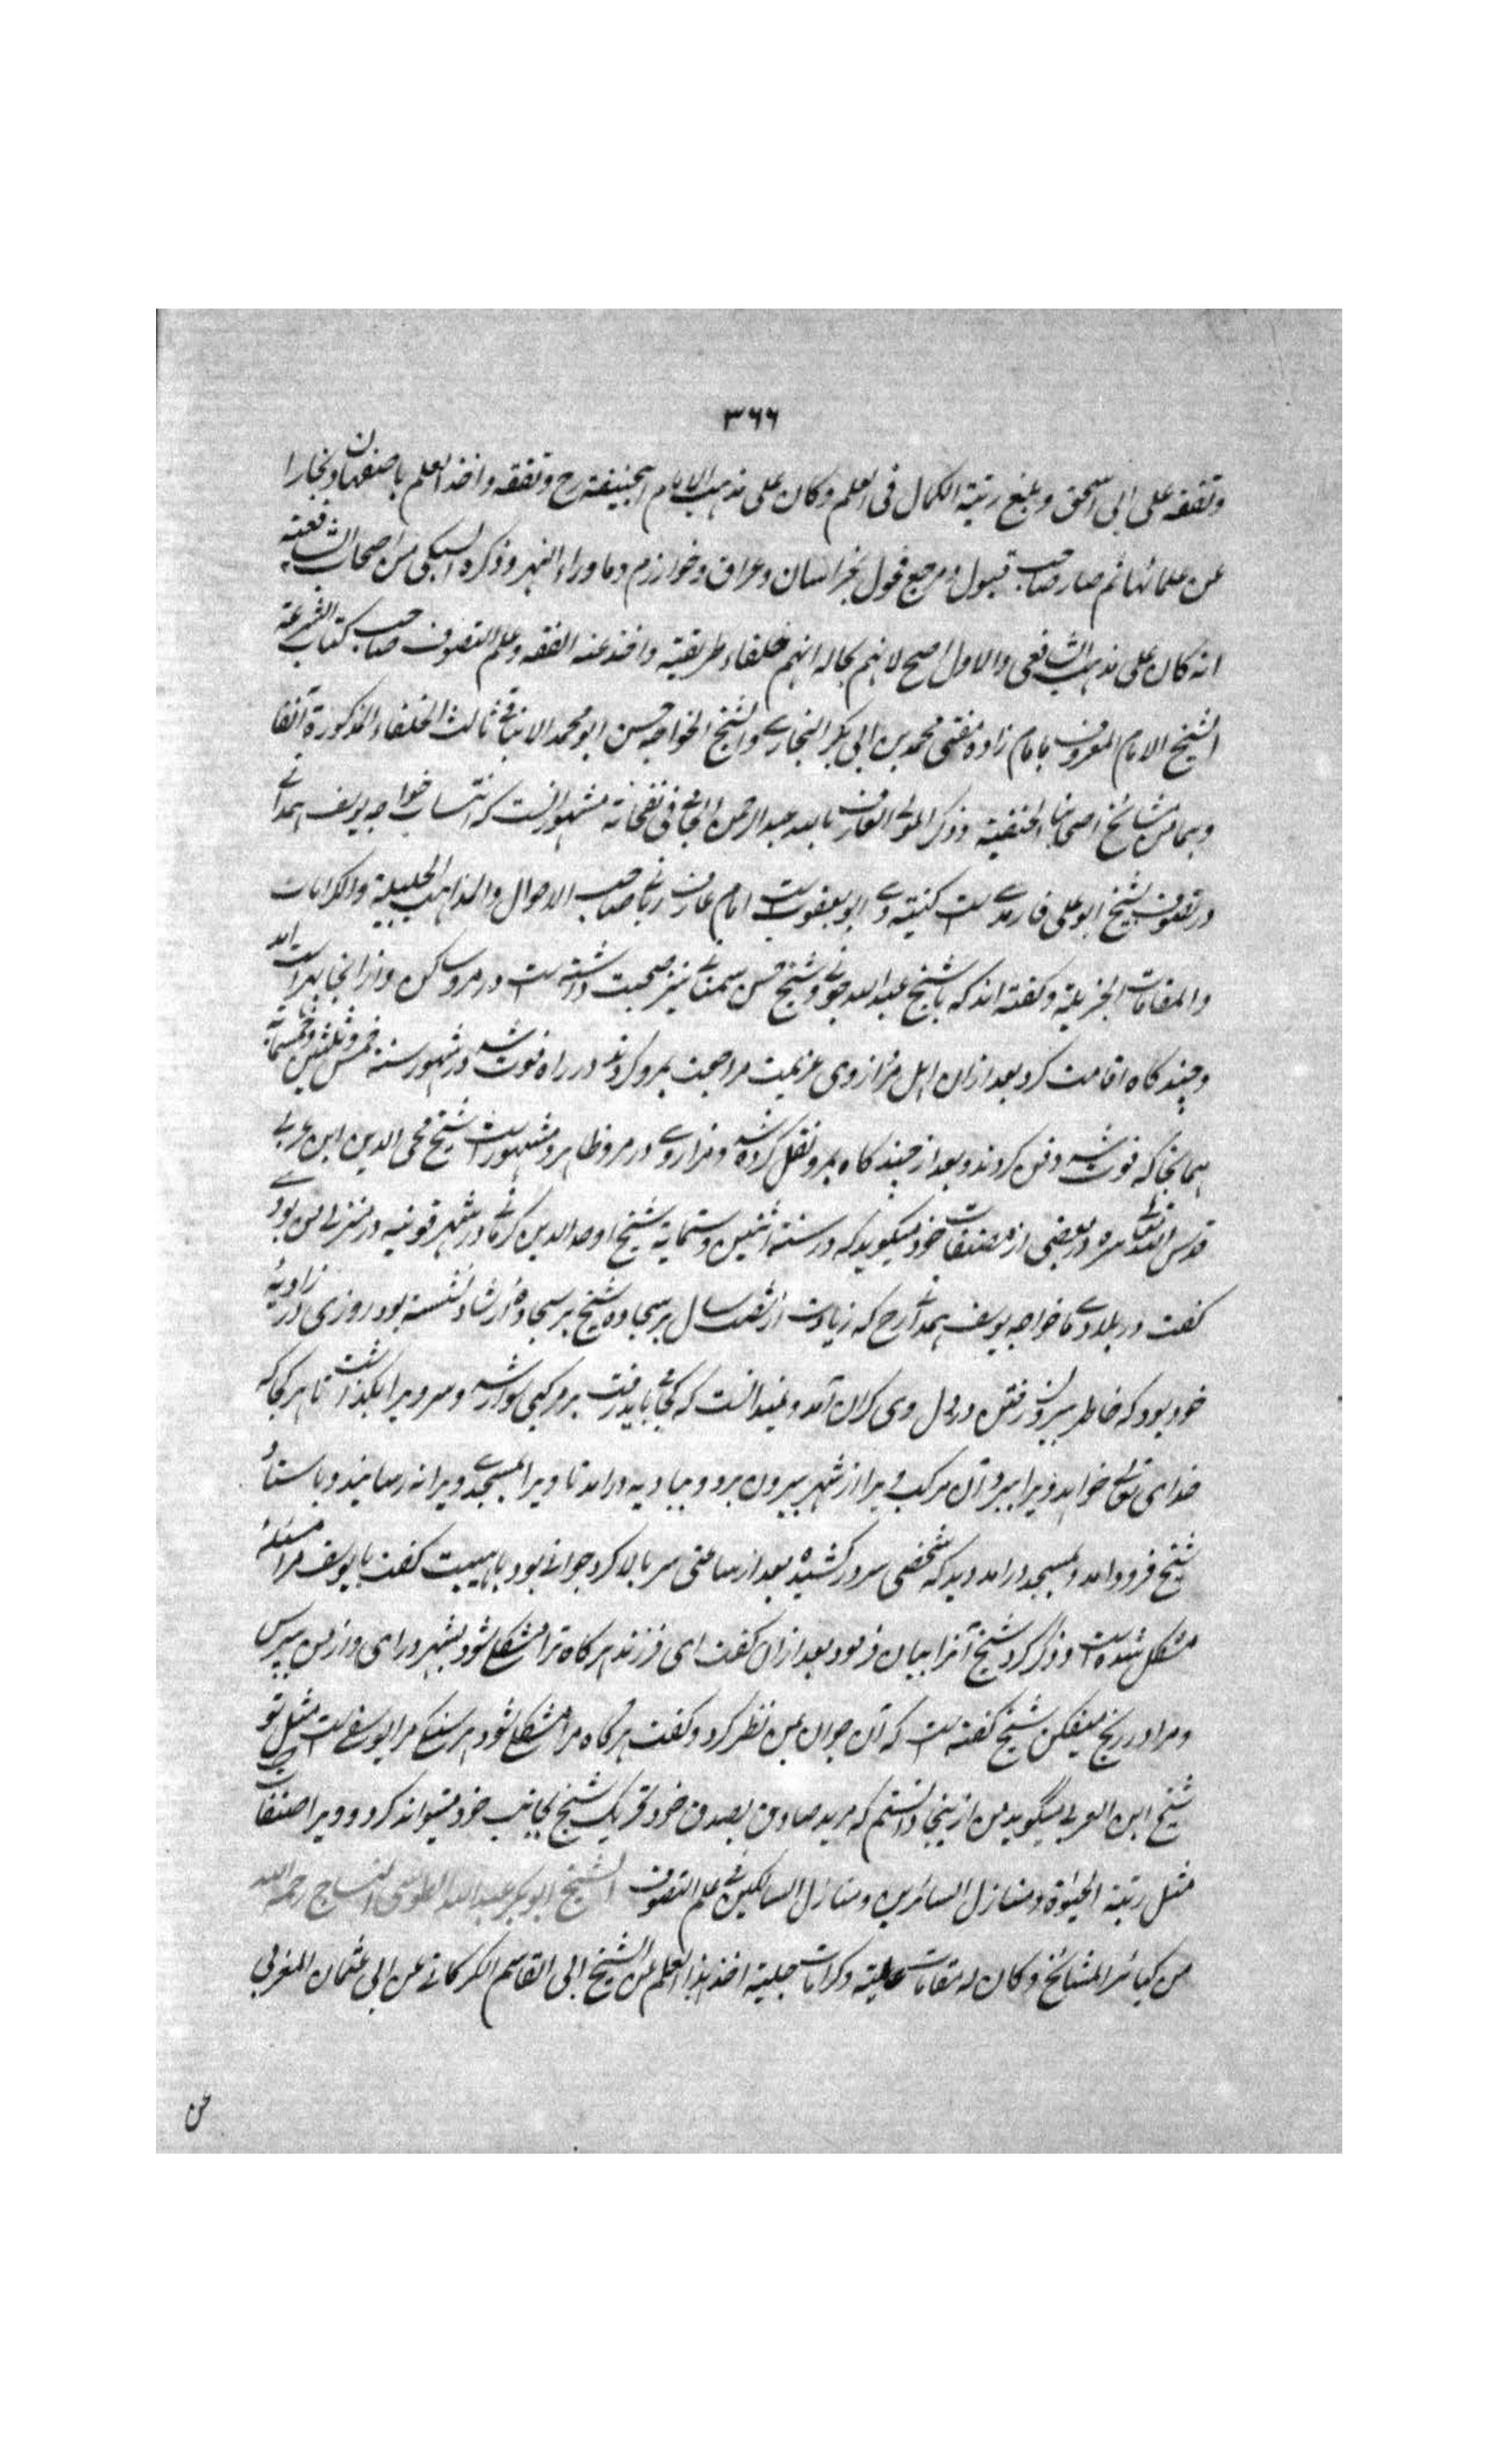 ۳۶۶
وتفقه علی ابی اسحق وبلغ رتبة الکمال فی العلم وکان علی مذهب الامام ابیحنیفة رح وتفقه واخذ العلم باصفهان وبخارا
عن علمائها ثم صار صاحب قبول ومرجع فحول بخراسان وعراق وخوارزم وماوراء النهر وذکره السبکی من اصحاب الشافعیة
انه کان علی مذهب الشافعی والاول اصح لانهم بحاله انهم خلفاء طریقته واخذ عنه الفقه وعلم التصوف صاحب کتاب الشرعة
الشیخ الامام المعروف بامام زاده مفتی محمد بن ابی بکر البخاری والشیخ الخواجه حسن ابو محمد الاندقی ثالث الخلفاء المذکورة آنفا
وهما من مشایخ اصحابنا الحنفیة وذکر المولی العارف بالله عبد الرحمن الجامی فی نفحاته مشهور انست که انتساب خواجه یوسف همدانی
در تصوف بشیخ ابو علی فارمدی است کنیته وی ابو یعقوبست امام عارف ربانی صاحب الاحوال والمذاهب الجلیلة والکرامات
والمقامات الجزیلة وگفته اند که با شیخ عبد الله جوینی وشیخ حسن سمنانی نیز صحبت داشته است در مرو ساکن وازانجا بهرات آمد
وچند گاه اقامت کرد بعد ازان اهل مرو ازوی عزیمت مراجعت بمرو کردند در راه فوت شد در شهور سنة خمس وثلثین وخمسمایة
همانجا که فوت شد دفن کردند وبعد از چند گاه بمرو نقل کرده شد ومزار وی در مرو ظاهر ومشهورست شیخ محی الدین ابن عربی
قدس الله تعالی سره در بعضی از مصنفات خود میگوید که در سنة اثنین وستمایة شیخ اوحد الدین کرمانی در شهر قونیه در منزل من بودی
گفت در بلاد ما خواجه یوسف همدانی رح که زیادت از شصت سال بر سجاده شیخ بر سجادۀ ارشاد نشسته بود روزی در زاویۀ
خود بود که خاطر بیرون رفتن در دل وی گران آمد ونمیدانست که کجا باید رفت بر مرکبی سوار شد وسر ویرا بگذاشت تا هر کجا که
خدای تعالی خواهد ویرا ببرد آن مرکب ویرا از شهر بیرون برد وببادیه درآمد تا ویرا بمسجدی ویرانه رسانید وباستاد
شیخ فرود آمد وبمسجد درآمد دید که شخصی سر در کشیده بعد از ساعتی سر بالا کرد جوانی بود با هیبت گفت یا یوسف مرا مسئلۀ
مشکل شده است وذکر کرد شیخ آنرا بیان فرمود بعد ازان گفت ای فرزند هر گاه ترا مشکلی شود بشهر درای واز من بپرس
ومرا در رنج میفکن شیخ گفته است که آن جوان بمن نظر کرد وگفت هر گاه مرا مشکلی شود هر سنگی مرا یوسفی ست مثل تو
شیخ ابن العربی میگوید من ازینجا دانستم که مرید صادق بصدق خود تحریک شیخ بجانب خود میتواند کرد وویرا مصنفات
مثل رتبة الحیٰوة ومنازل السائرین ومنازل السالکین فی علم التصوف الشیخ ابو بکر عبد الله الطوسی النساج رحمه الله
من کبائر المشایخ وکان له مقامات عالیة وکرامات جلیة اخذ هذا العلم من الشیخ ابی القاسم الکرکانی عن ابی عثمان المغربی
عن